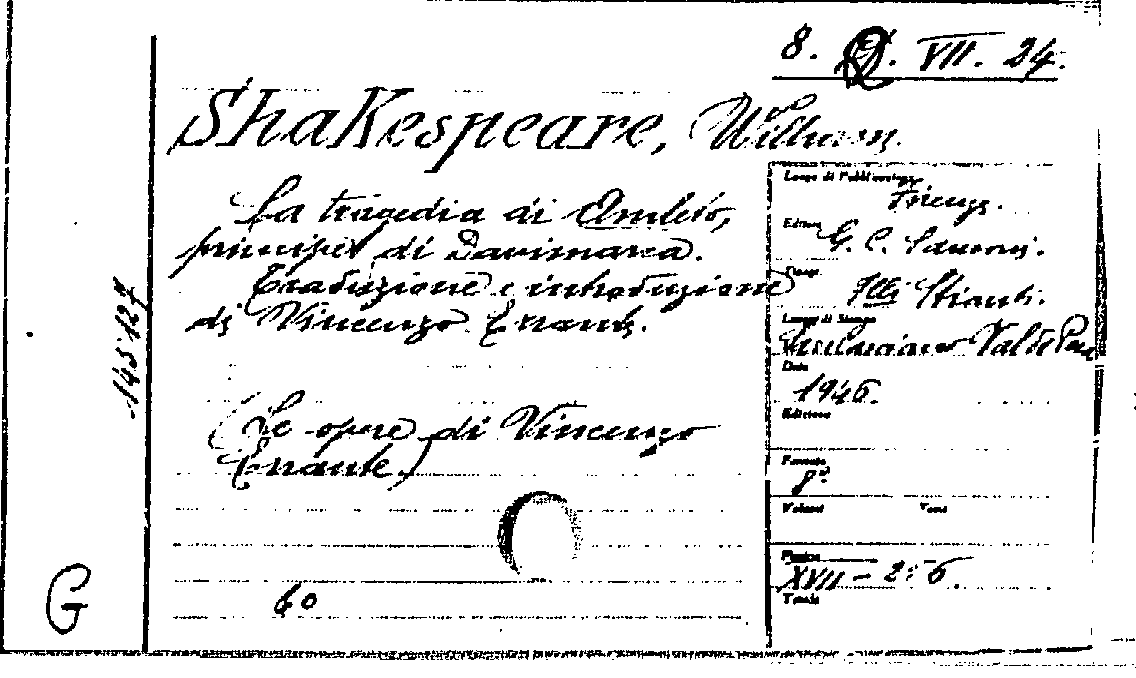 8. Q. VII. 24.
Shakespeare, William.
La tragedia di Amleto,
principe di Danimarca.
Traduzione e introduzione
di Vincenzo Errante.
(Le opere di Vincenzo
Errante)
60
G
145127
Luogo di Pubblicazione
Firenze.
Editore G. C. Sansoni.
Tipogr. F.lli Stianti.
Luogo di Stampa
Data
1946.
Edizione
Formato
8°
Volumi Tomi
Pagine
XVII - 
Tavole